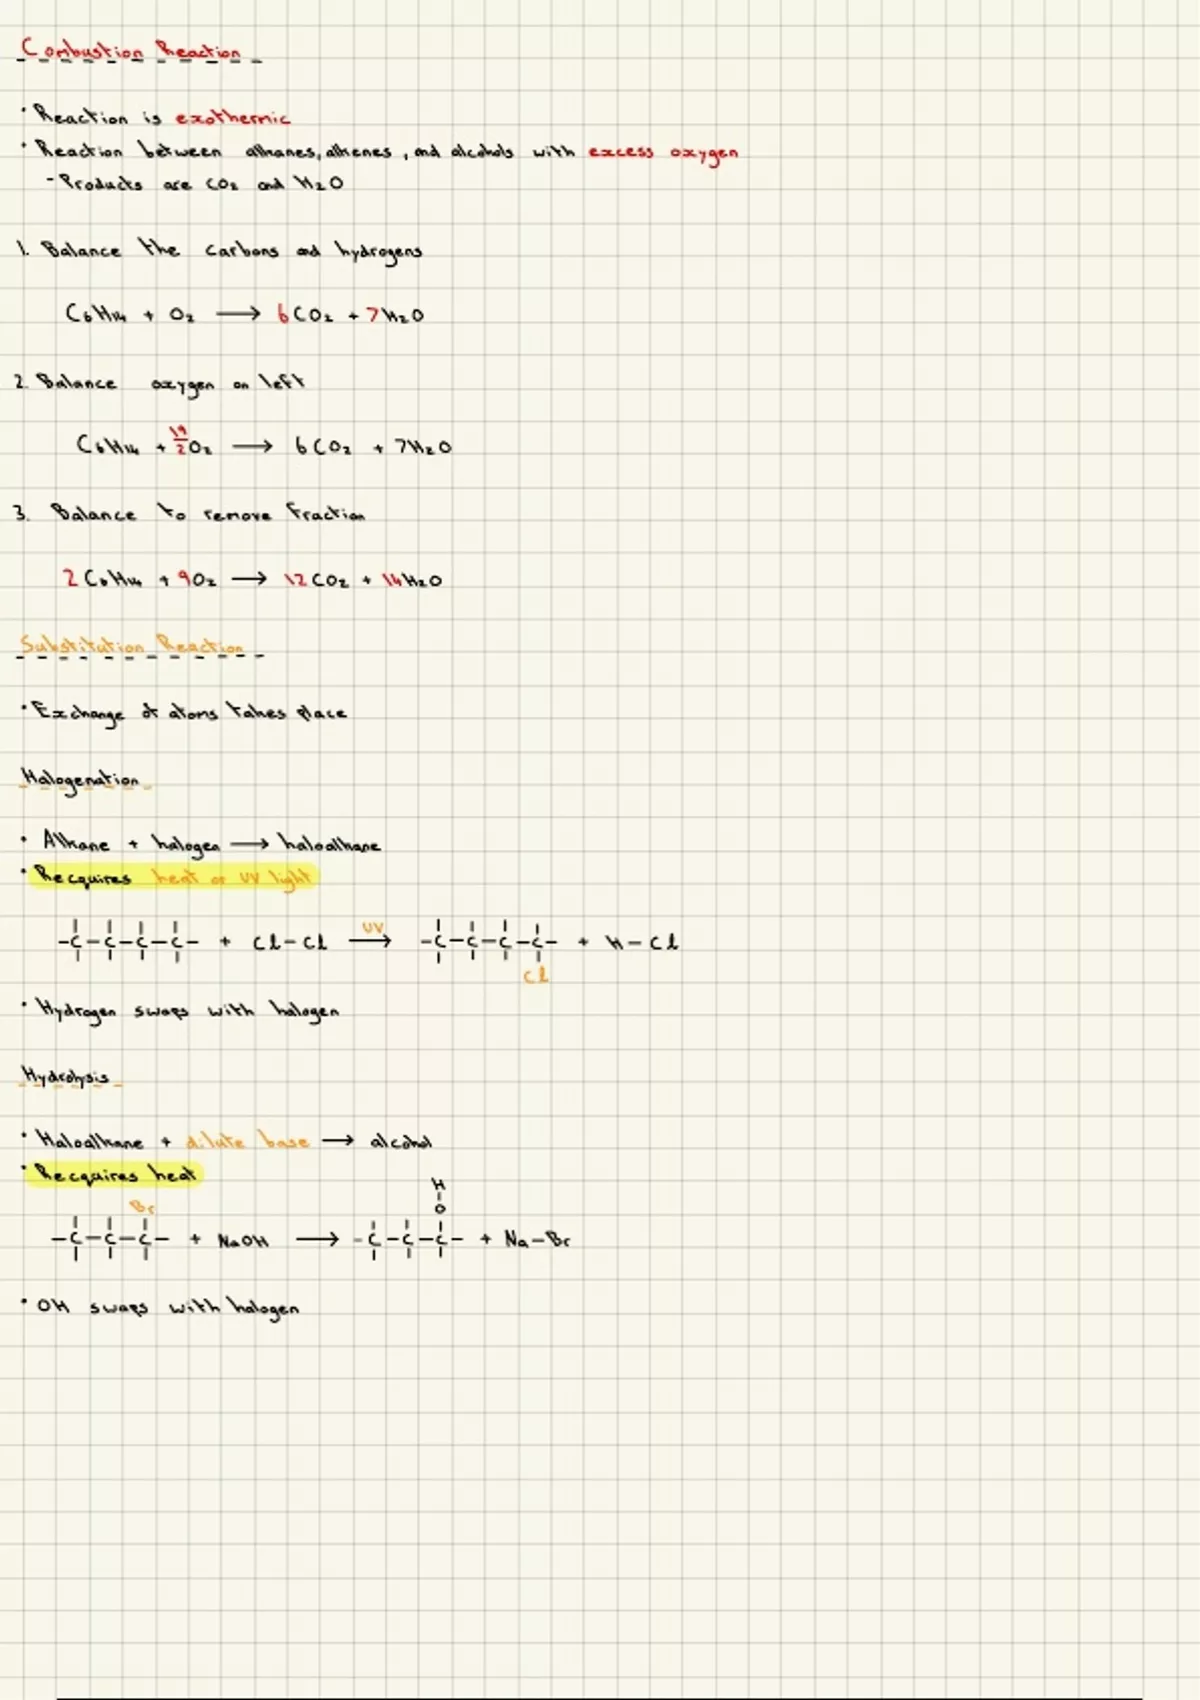 Combustion Reaction
• Reaction is exothermic
• Reaction between alkanes, alkenes, and alcohols with excess oxygen
- Products are CO₂ and H₂O
1. Balance the carbons and hydrogens
C₆H₁₄ + O₂ ⟶ 6CO₂ + 7H₂O
2. Balance oxygen on left
C₆H₁₄ + 19/2 O₂ ⟶ 6CO₂ + 7H₂O
3. Balance to remove fraction
2C₆H₁₄ + 9O₂ ⟶ 12CO₂ + 14H₂O
Substitution Reaction
• Exchange of atoms takes place
Halogenation
• Alkane + halogen ⟶ haloalkane
• Recquires heat or UV light
UV
-C-C-C-C- + Cl-Cl ⟶ -C-C-C-C- + H-Cl
Cl
• Hydrogen swaps with halogen
Hydrolysis
• Haloalkane + dilute base ⟶ alcohol
• Recquires heat
H
Br O
-C-C-C- + NaOH ⟶ -C-C-C- + Na-Br
• OH swaps with halogen